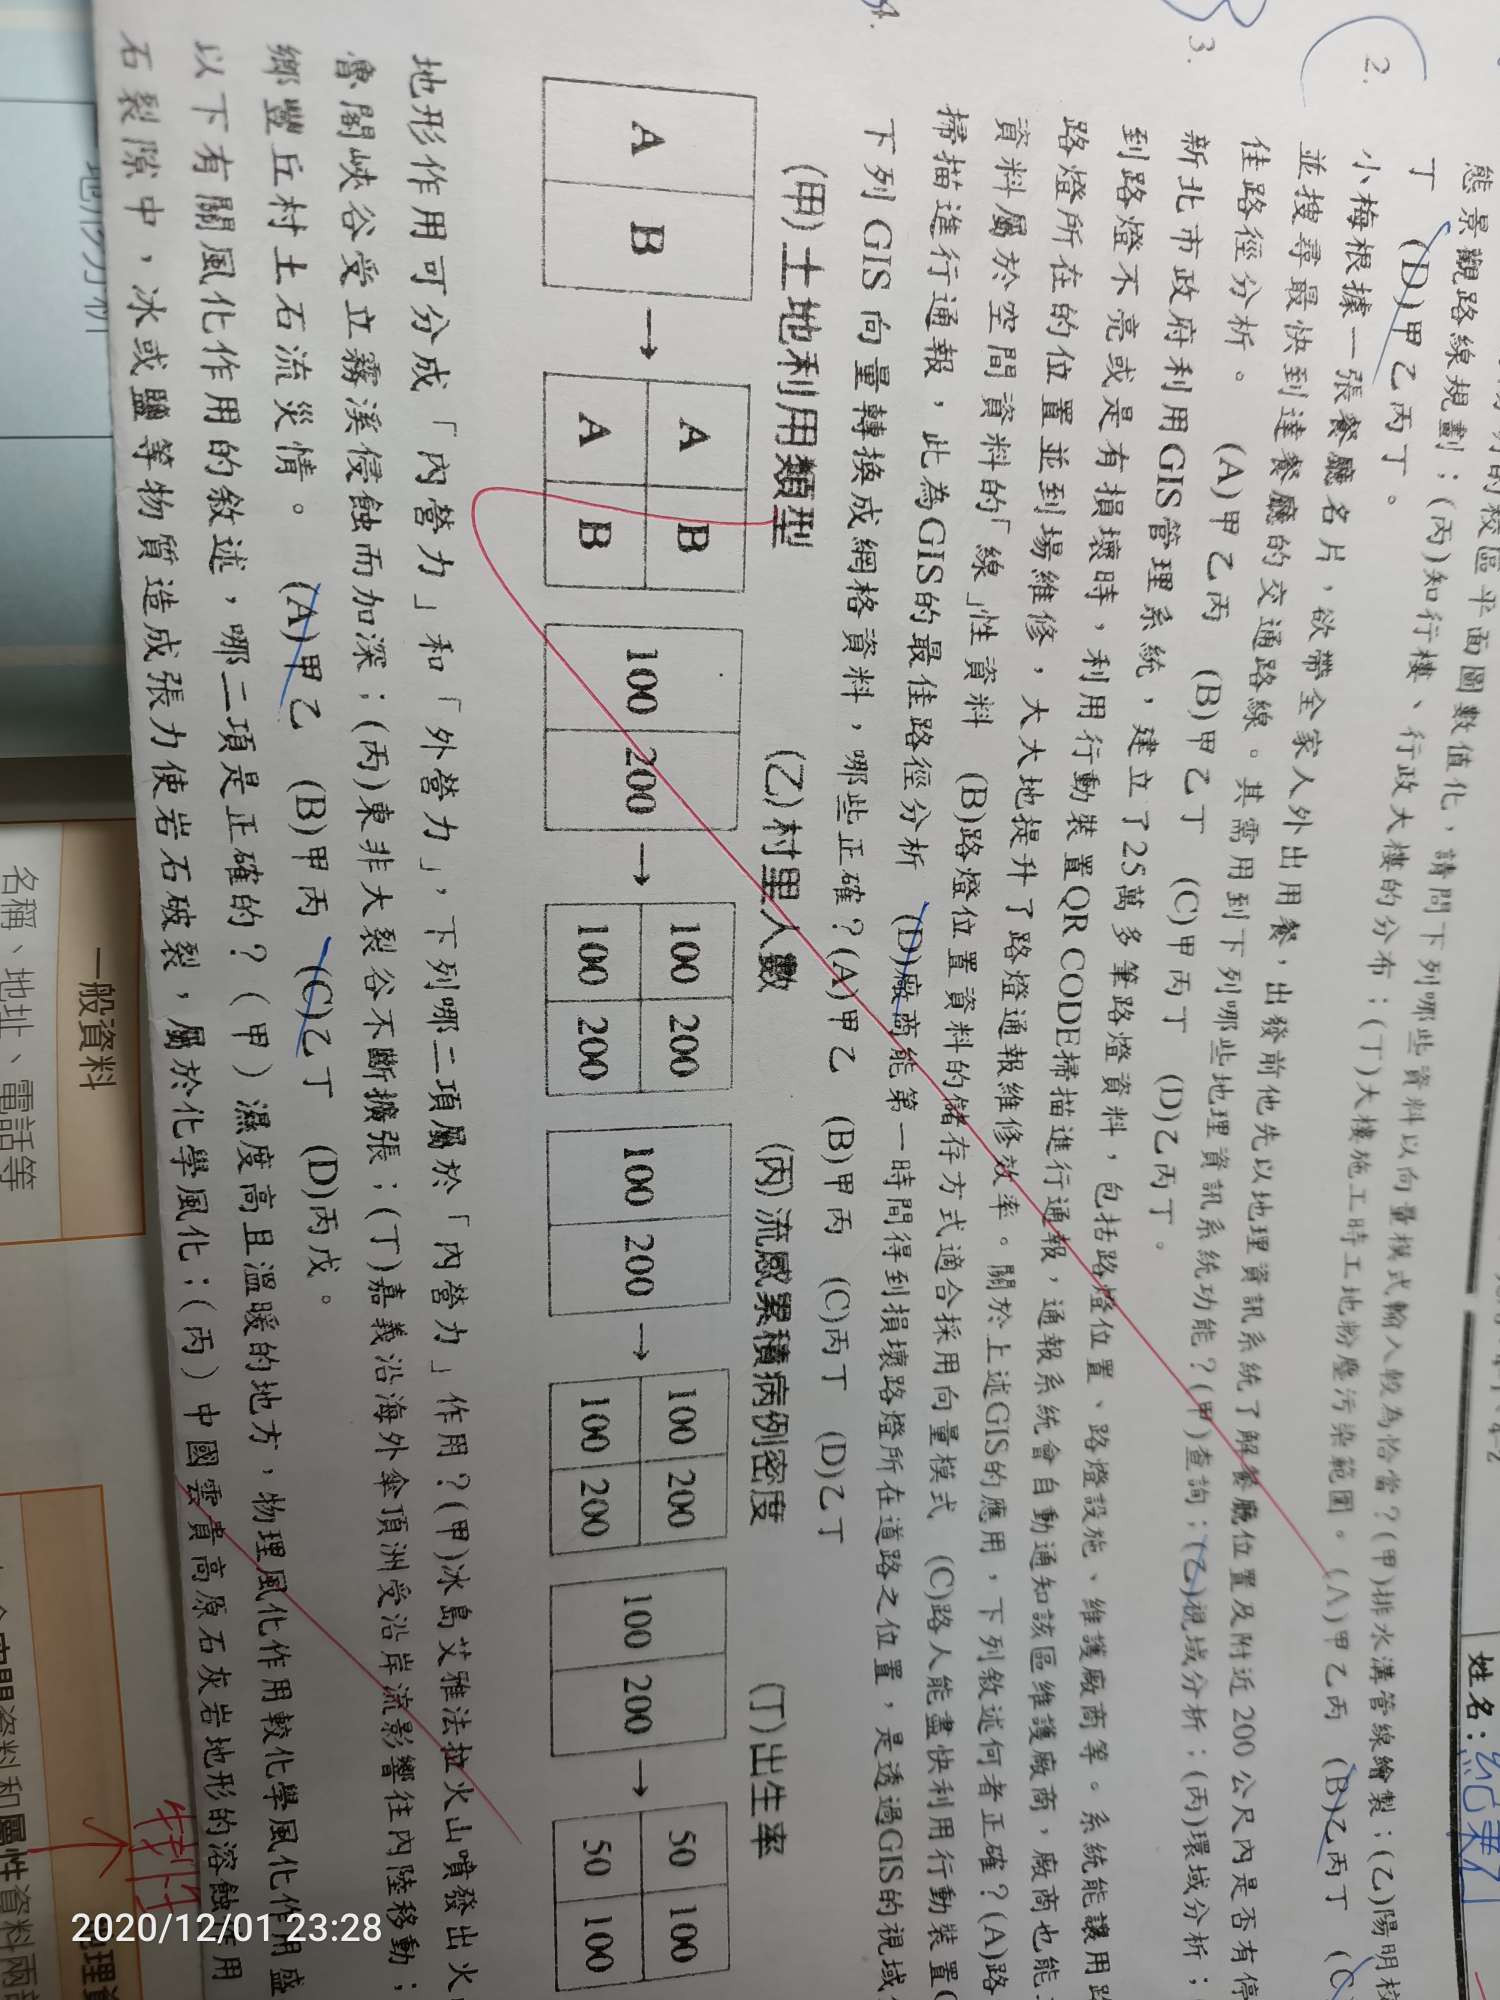 姓名：
態景觀路線規劃；(丙)知行樓、行政大樓的分布；(丁)大樓施工時工地粉塵污染範圍。 (A)甲乙丙 (B)乙丙丁 (C)
丁 (D)甲乙丙丁。
2. 小梅根據一張餐廳名片，欲帶全家人外出用餐，出發前他先以地理資訊系統了解餐廳位置及附近200公尺內是否有停
並搜尋最快到達餐廳的交通路線。其需用到下列哪些地理資訊系統功能？(甲)查詢；(乙)視域分析；(丙)環域分析；
佳路徑分析。 (A)甲乙丙 (B)甲乙丁 (C)甲丙丁 (D)乙丙丁。
3. 新北市政府利用GIS管理系統，建立了25萬多筆路燈資料，包括路燈位置、路燈設施、維護廠商等。系統能讓用路
到路燈不亮或是有損壞時，利用行動裝置QR CODE掃描進行通報，通報系統會自動通知該區維護廠商，廠商也能
路燈所在的位置並到場維修，大大地提升了路燈通報維修效率。關於上述GIS的應用，下列敘述何者正確？(A)路
資料屬於空間資料的「線」性資料 (B)路燈位置資料的儲存方式適合採用向量模式 (C)路人能盡快利用行動裝置
掃描進行通報，此為GIS的最佳路徑分析 (D)廠商能第一時間得到損壞路燈所在道路之位置，是透過GIS的視域
4. 下列 GIS 向量轉換成網格資料，哪些正確？(A)甲乙 (B)甲丙 (C)丙丁 (D)乙丁
(甲)土地利用類型 (乙)村里人數 (丙)流感累積病例密度 (丁)出生率
A B → A B 100 200 → 100 200 100 200 → 100 200 100 200 → 50 100
A B 100 200 100 200 50 100
地形作用可分成「內營力」和「外營力」，下列哪二項屬於「內營力」作用？(甲)冰島艾雅法拉火山噴發出火
魯閣峽谷受立霧溪侵蝕而加深；(丙)東非大裂谷不斷擴張；(丁)嘉義沿海外傘頂洲受沿岸流影響往內陸移動；
鄉豐丘村土石流災情。 (A)甲乙 (B)甲丙 (C)乙丁 (D)丙戊。
以下有關風化作用的敘述，哪二項是正確的？（甲）濕度高且溫暖的地方，物理風化作用較化學風化作用盛
石裂隙中，冰或鹽等物質造成張力使岩石破裂，屬於化學風化；（丙）中國雲貴高原石灰岩地形的溶蝕作用
特性
一般資料
名稱、地址、電話等
2020/12/01 23:28